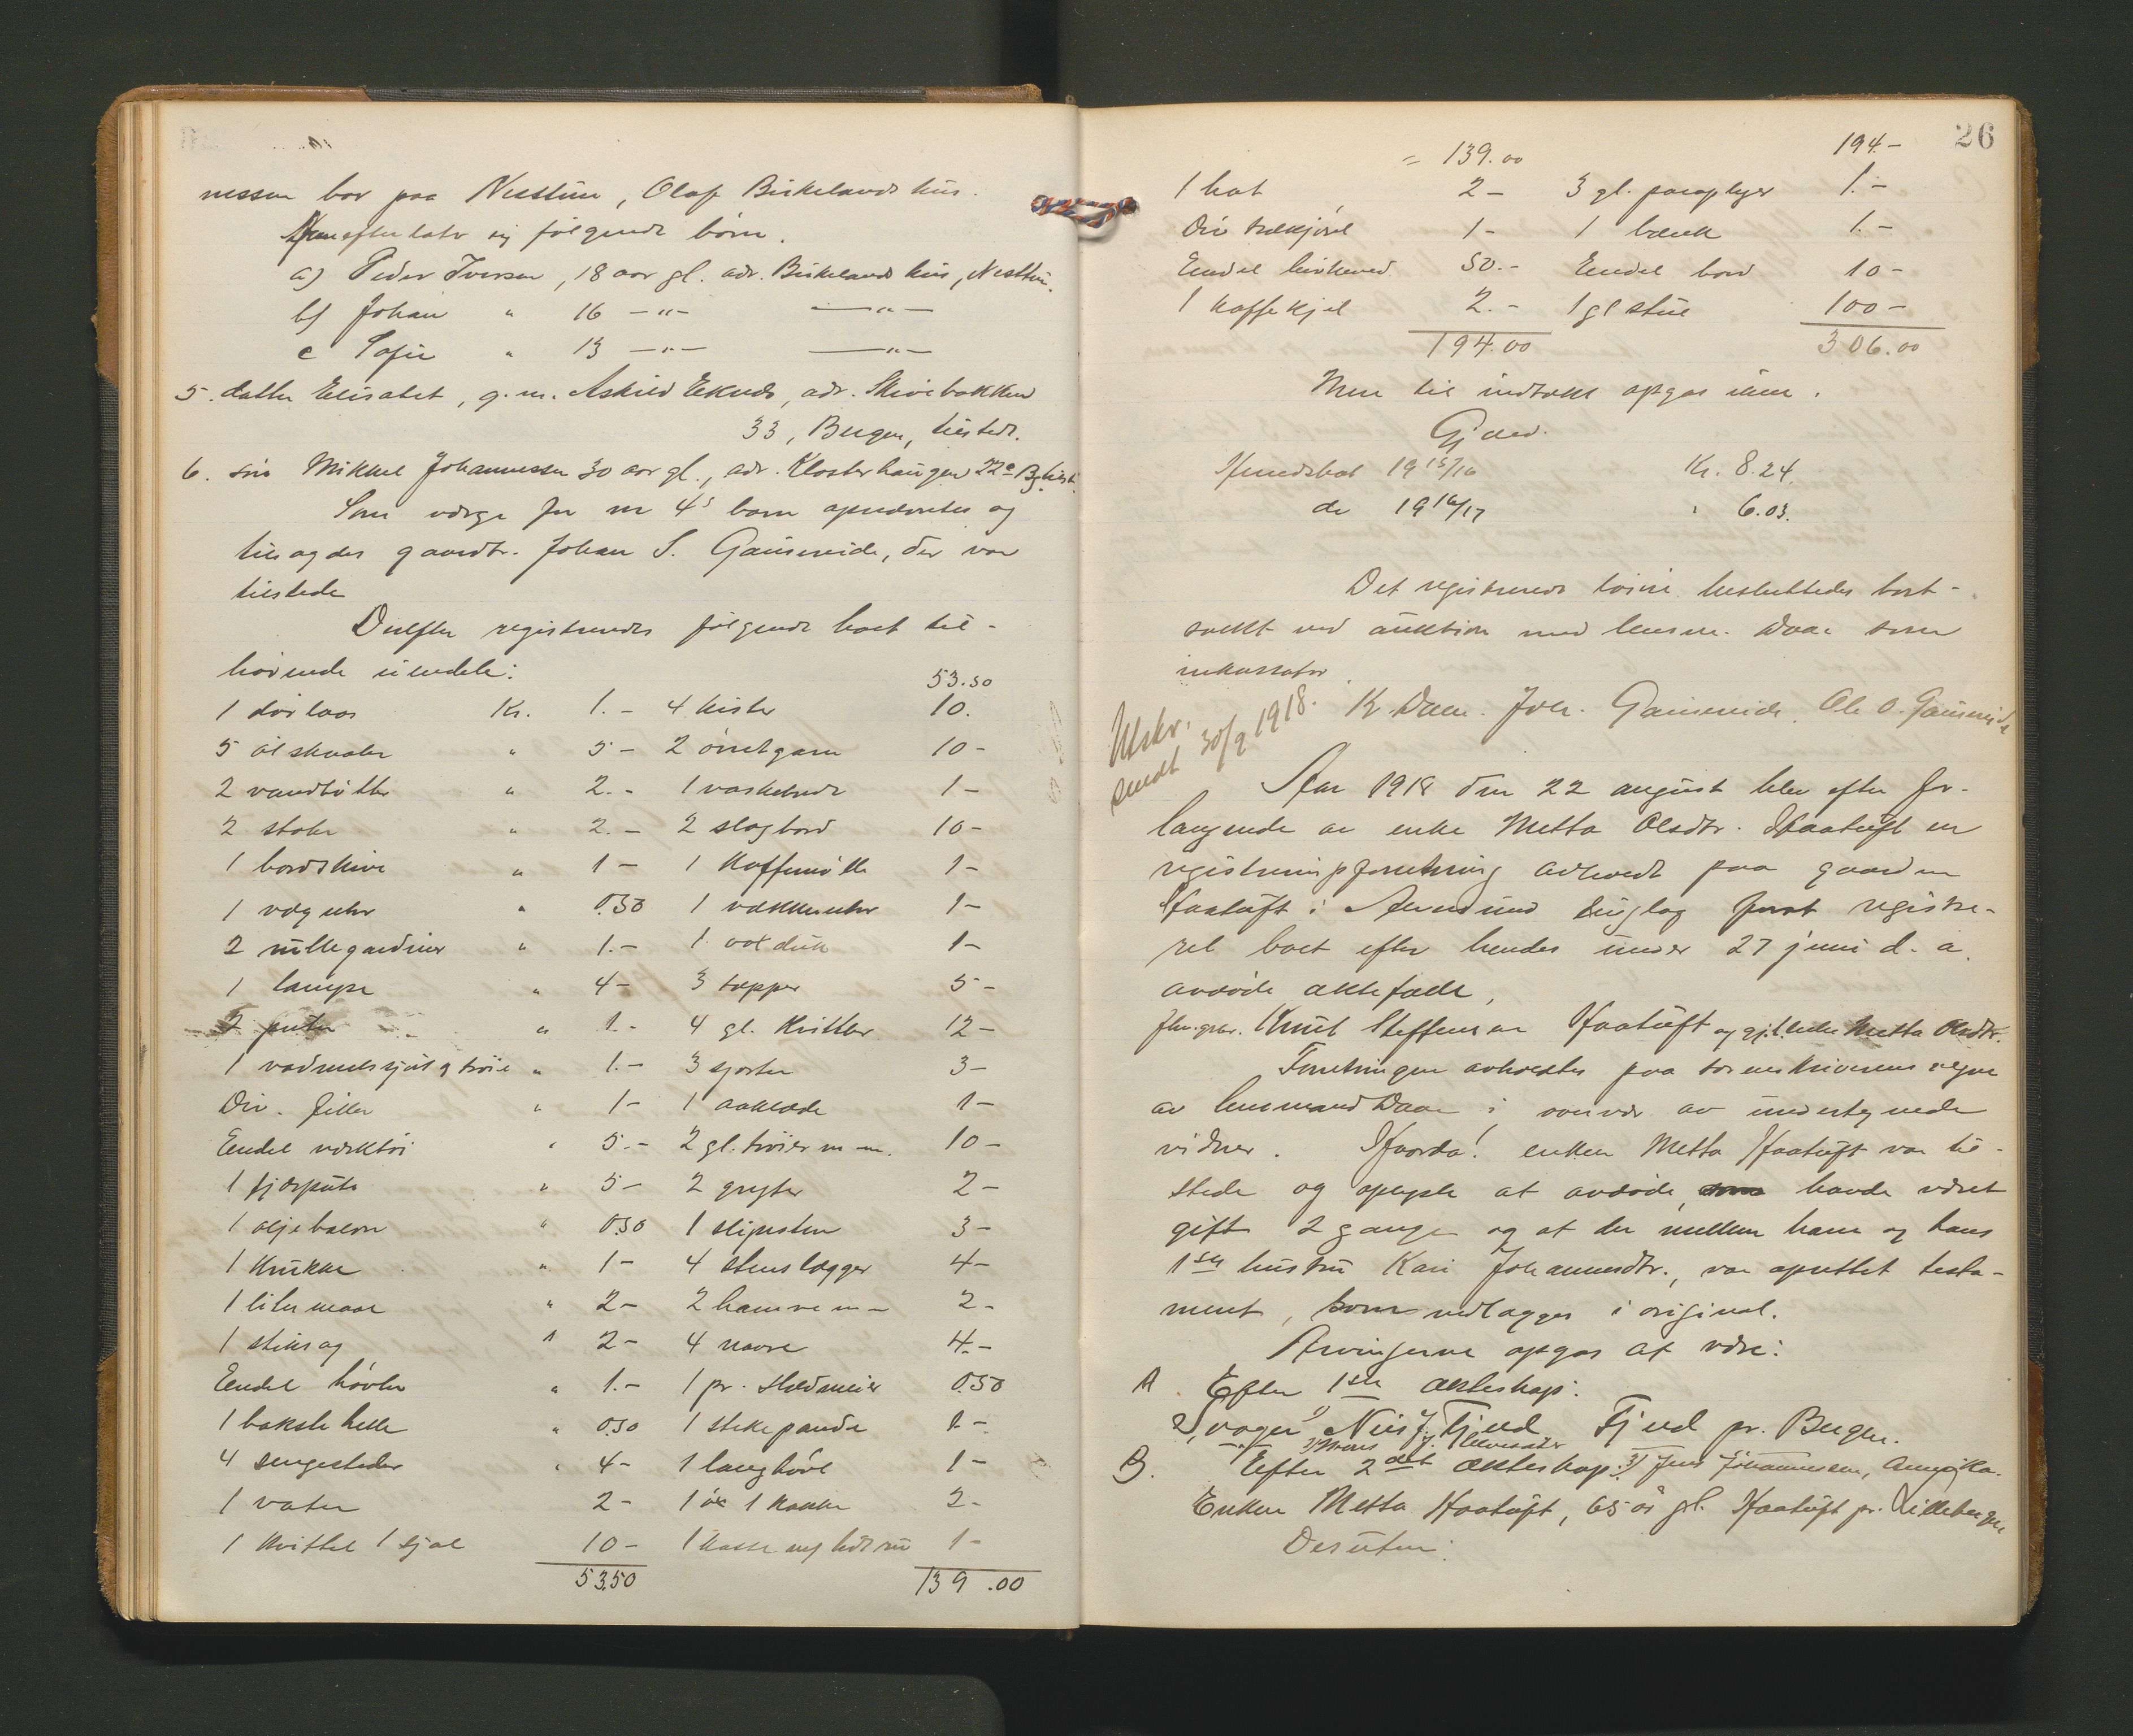 nessen bor paa Nesttun, Olaf Birkelands hus.
Hun efterlater sig følgende børn.
a) Peder Iversen, 18 aar gl. adr. Birkelands hus, Nesttun.
b) Johan " 16 —"— —"—
c Sofie " 13 —"— —"—
5. datter Elisabet, g. m. Askild Eknes, adr. Skivebakken
33, Bergen, tilstede.
6. søn Mikkel Johannessen 30 aar gl., adr. Klosterhaugen 22a Bg. tilst.
Som verge for nr 4s barn opnævntes og
tilsagdes gaardbr. Johan S. Gauseneide, der var
tilstede
Derefter registreredes følgende boet til-
hørende eiendele:
53.50
1 dørlaas Kr. 1.- 4 kister 10.
5 ølskaaler " 5- 2 ørretgarn 10-
2 vandbøtter " 2.- 1 vaskebrede 1-
2 stoler " 2.- 2 slagbord 10-
1 bordskive " 1- 1 kaffemølle 1-
1 væguhr " 0.50 1 vækkeruhr 1-
2 rullegardiner " 1.- 1 voxduk 1-
1 lampe " 4- 3 tæpper 5-
2 puter " 1.- 4 gl. kvitler 12-
1 vadmelskjole & trøie " 1.- 3 skjorter 3-
Div. filler " 1- 1 aaklæde 1-
Endel verktøi " 5.- 2 gl. trøier m m. 10-
1 fjærpute " 5- 2 gryter 2-
1 oljebalon " 0.50 1 slipesten 3-
1 krukke " 1- 4 stenslægger 4-
1 litermaal " 2- 2 hamre m- 2-
1 stiksag " 2- 4 navre 4.-
Endel høvler " 1.- 1 pr. sledmeier 0.50
1 bakstehelle " 0.50 1 stekepande 1-
4 sengesteder " 4- 1 langhøvl 1-
1 vater 2- 1 øks 1 hakke 2-
1 kvittel 1 sjal 10- 1 kasse
1-
53.50 139.00
26
= 139.00 194-
1 hat 2- 3 gl. paraplyer 1.-
Div trækjørel 1- 1 bænk 1.-
Endel birkeved 50.- Endel bord 10-
1 kaffekjel 2.- 1 gl stue 100-
194.00 306.00
Mere til indtækt opgas ikke.
Gjæld.
Herredskat 1915/16 Kr. 8.24.
do 1916/17 " 6.03.
Det registrerede løsøre besluttedes bort-
solgt ved auktion med lensm. Daae som
inkassator.
Utskr. sendt 30/9 1918.
K Daae. Joh. Gauseneide. Ole O. Gauseneide
Aar 1918 den 22 august blev efter for-
langende av enke Metta Olsdtr. Haatuft en
registreringsforretning avholdt paa gaarden
Haatuft i tinglag for at registre-
ret boet efter hendes under 27 juni d. a.
avdøde ektefælle,
fhv. grbr. Knut Steffensen Haatuft og gjl. enke Metta Olsdtr.
Forretningen avholdtes paa sorenskriverens vegne
av lensmand Daae i overvær av undertegnede
vidner. Hvorda! enken Metta Haatuft var til-
stede og oplyste at avdøde, som havde været
gift 2 gange og at der mellem ham og hans
1ste hustru Kari Johannesdtr., var oprettet testa-
ment, som vedlægges i original.
Arvingerne opgas at være:
A. Efter 1ste ekteskap:
svoger Nils J. Fjeld Fjeld pr. Bergen.
3) Jens Johannessen, Amerika.
B. Efter 2det ekteskap:
Enken Metta Haatuft, 65 år gl. Haatuft pr. Lillebergen
Desuten: